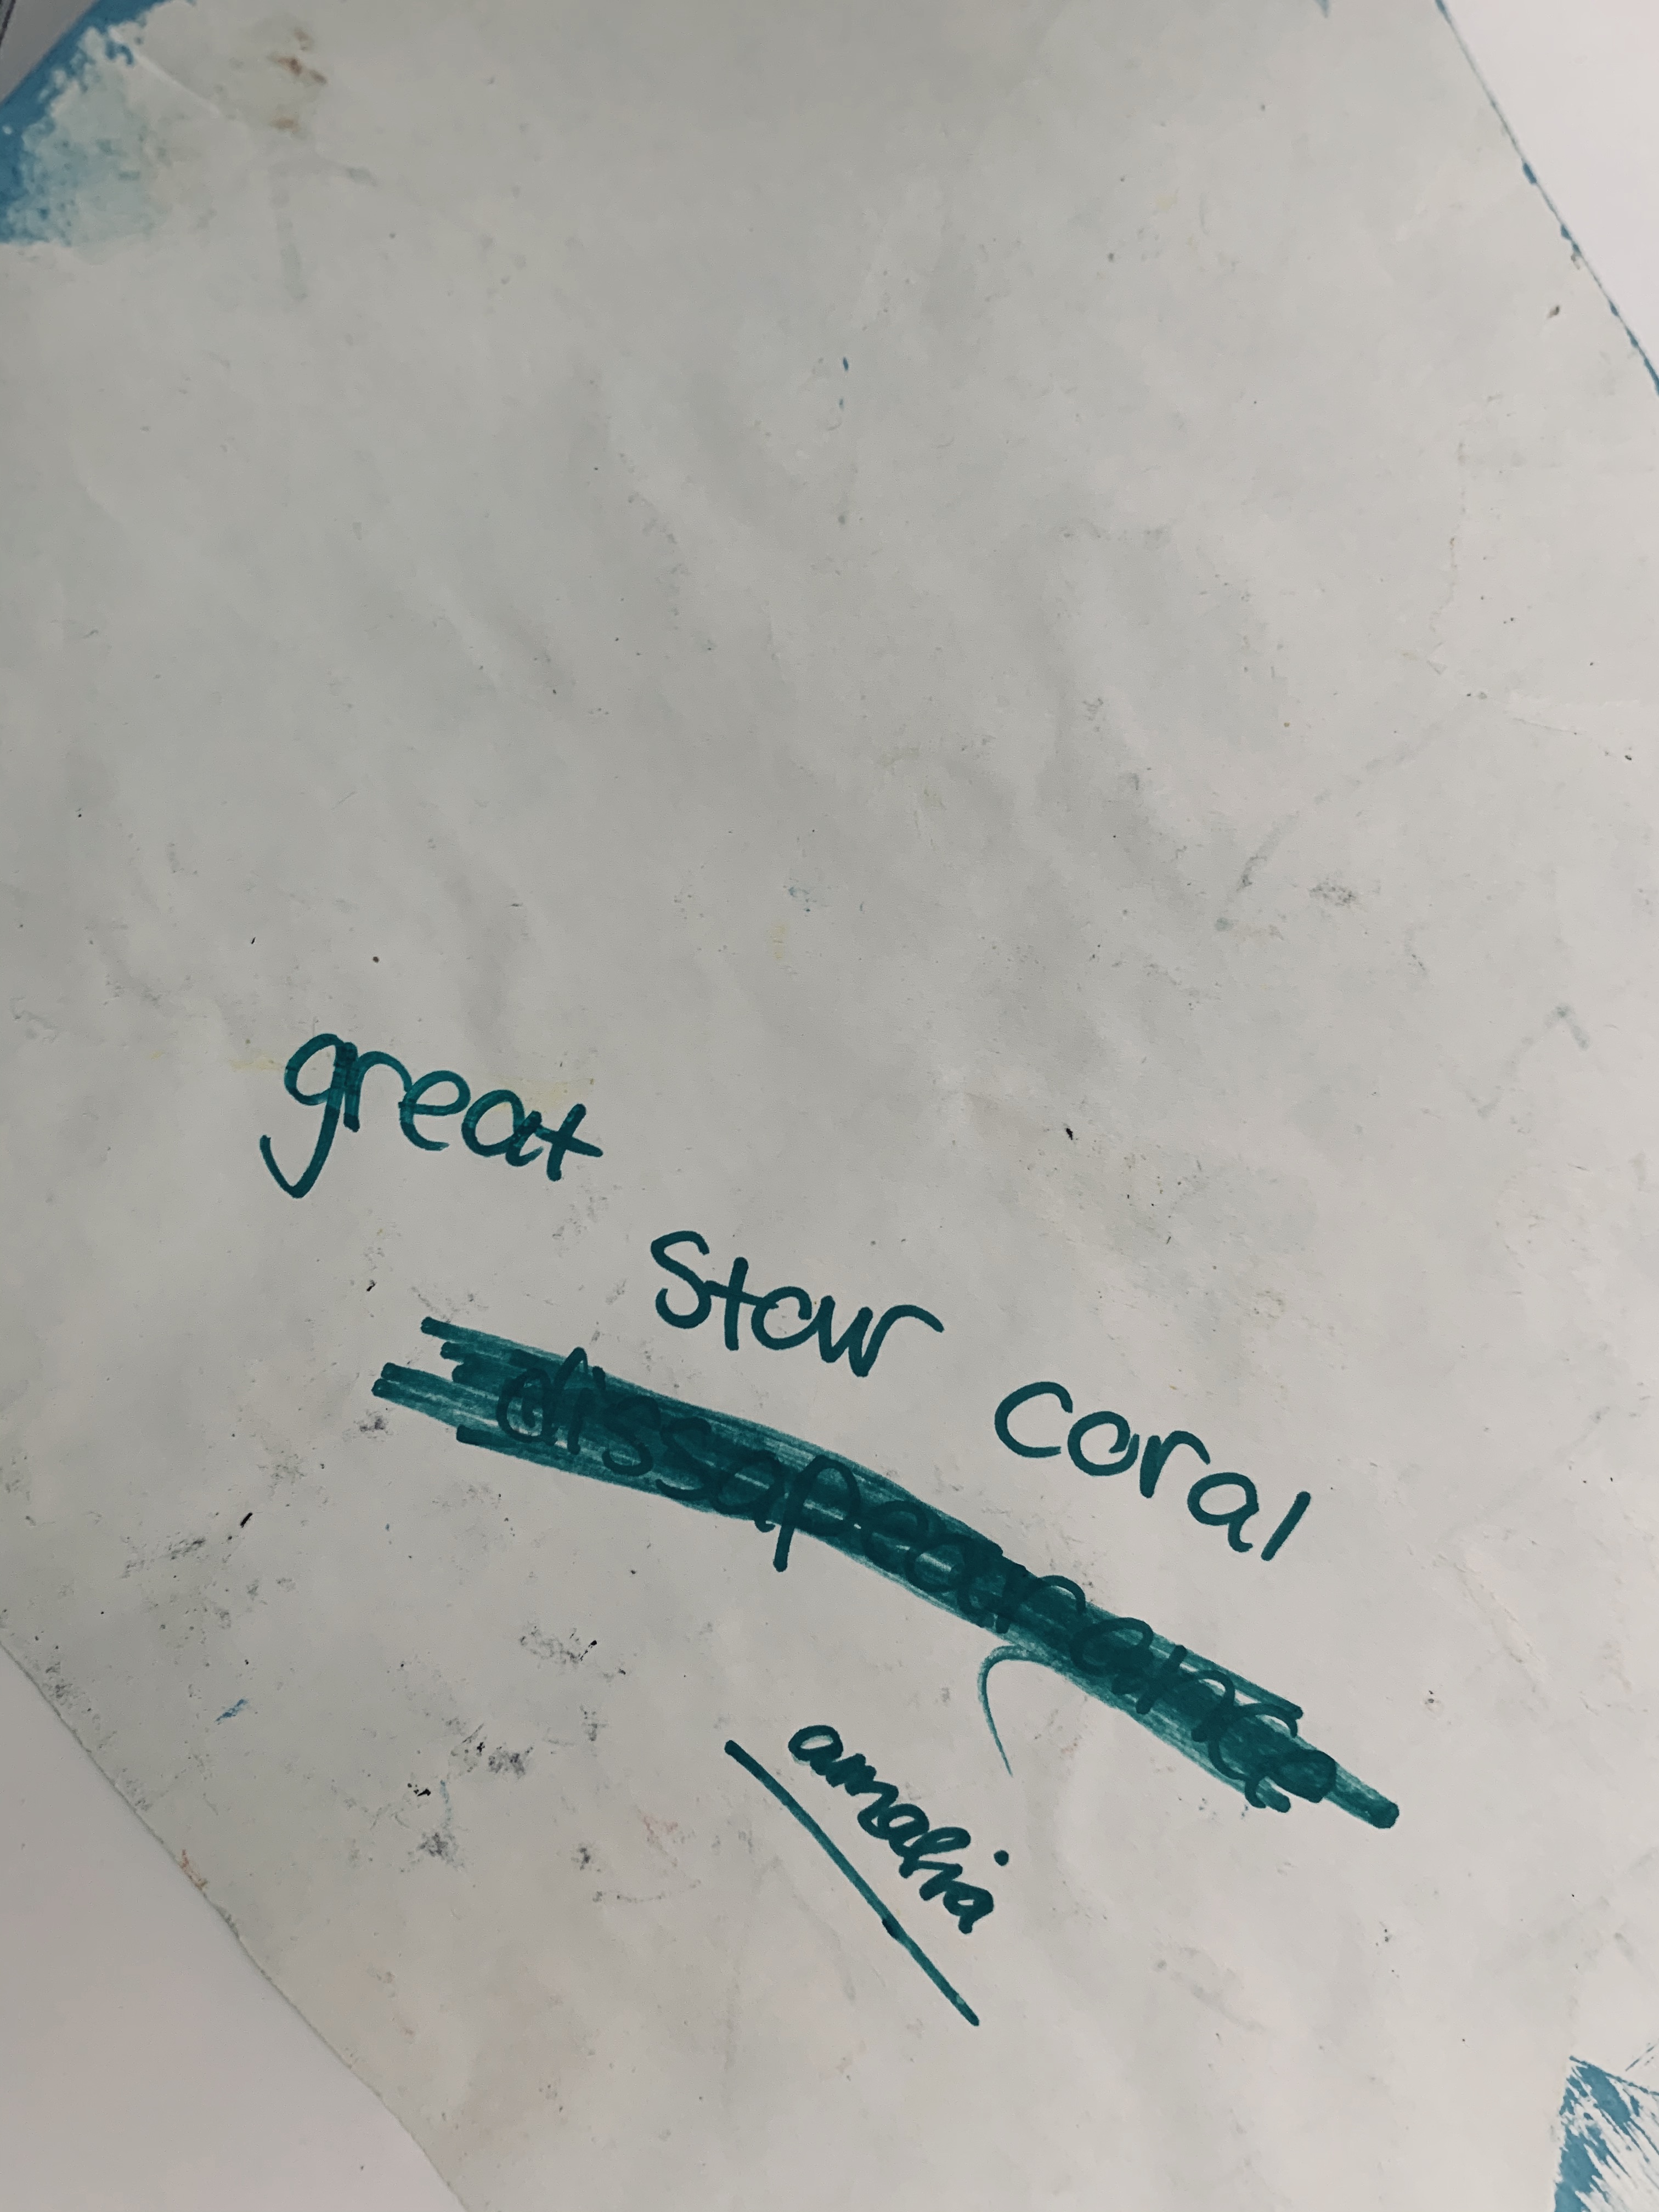 great star coral
dissapearance
amalia